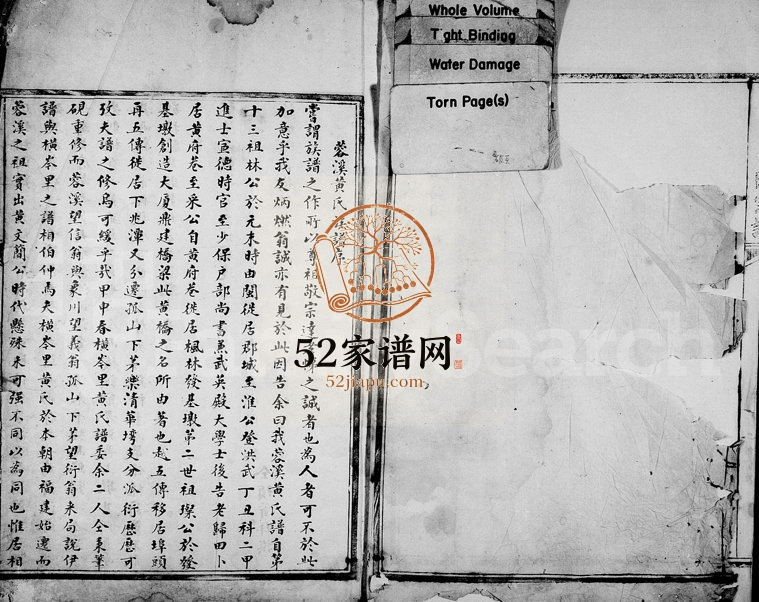 Whole Volume
Tight Binding
Water Damage
Torn Page(s)
蓉溪黄氏譜序
嘗謂族譜之作所以尊祖敬宗達之誠者也為人者可不於此
加意乎我友炳燃翁誠亦有見於此因告余曰我蓉溪黄氏譜自第
十三祖林公於元末時由閩徙居郡城至淮公登洪武丁丑科二甲
進士宣德時官至少保户部尚書兼武英殿大學士後告老歸田卜
居黄府巷至采公自黄府巷徙居楓林發基墩第二世祖璨公於發
基墩創造大厦鼎建橋梁此黄橋之名所由著也越五傳移居埠頭
再五傳徙居下兆潭又分遷孤山下茅樂清華塆支分派衍歷歷可
攷夫譜之修烏可緩乎哉甲申春橫峯里黄氏譜委余二人仝秉筆
硯重修而蓉溪望信翁與象川望義翁孤山下茅望衍翁來局說伊
譜與橫峯里之譜相伯仲焉夫橫峯里黄氏於本朝由福建始遷而
蓉溪之祖實出黄文簡公時代懸殊未可强不同以為同也惟居相
52家谱网
52jiapu.com
Search